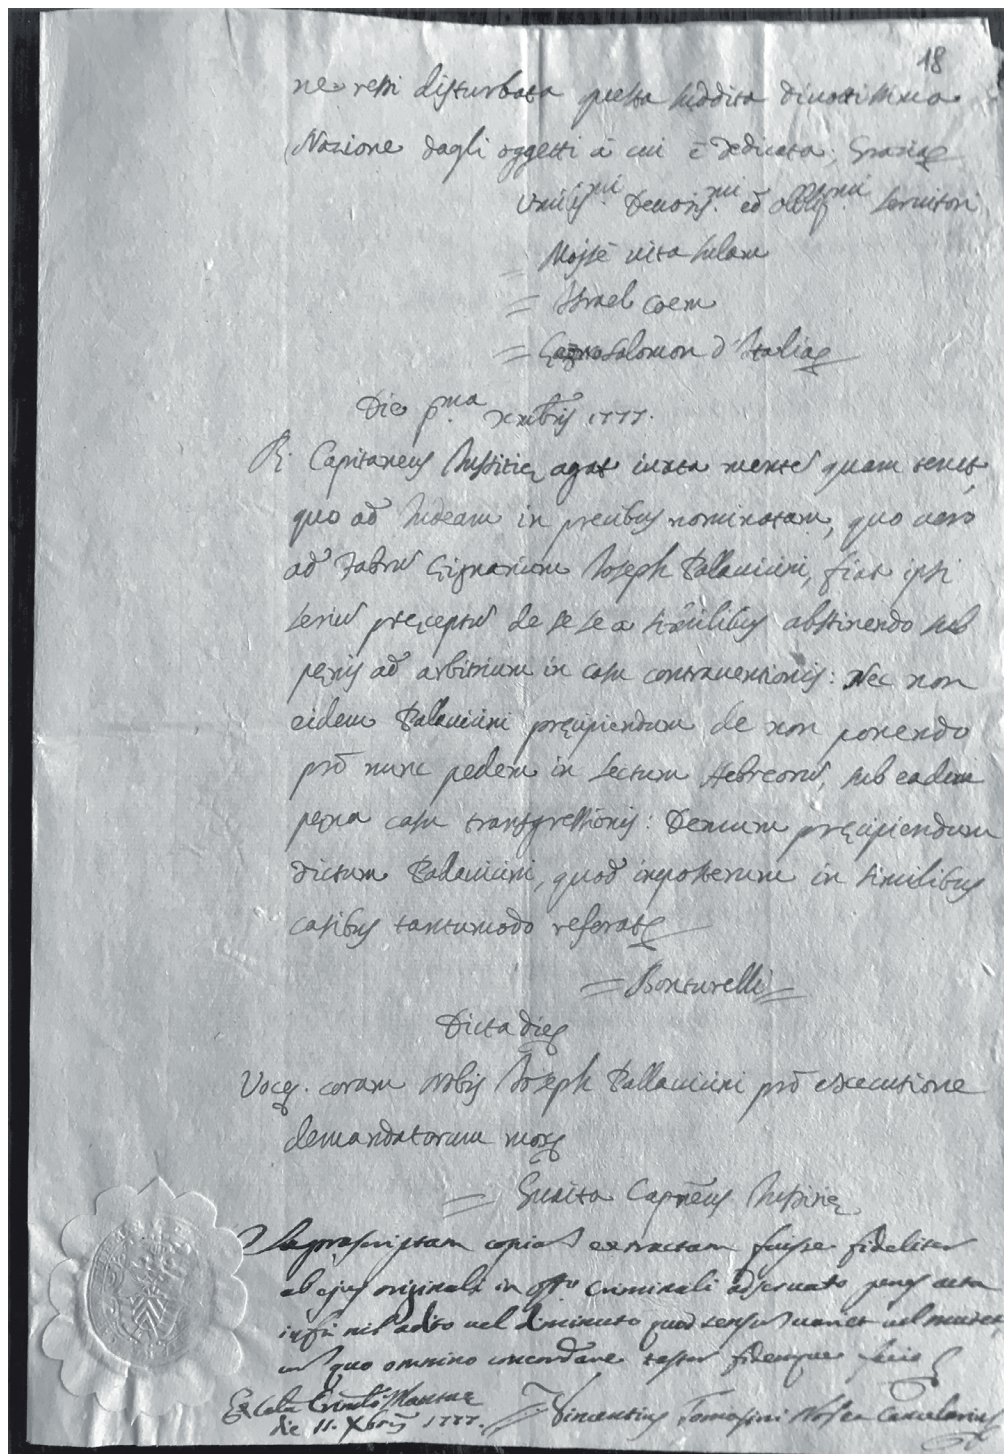 18
ne resti disturbata questa suddita divotissima
Nazione dagli oggetti à cui è dedicata; Grazia
Umilis.mi Devotis.mi ed obblig.mi Servitori
= Mojsè vita Sulam
= Israel Coem
= Salomon d'Italia
Die p.ma Xmbris 1777.
R. Capitaneus Justitię agat iuxta mentem quam tenet,
quo ad Judeam in precibus nominatam, quo vero
ad Fabrũ Lignarium Joseph Pallavicini, fiat ipsi
seriũ pręceptũ de se se a similibus abstinendo sub
pęnis ad arbitrium in casu contraventionis: Nec non
eidem Pallavicini pręcipiendum de non ponendo
prõ nunc pedem in Hebreorũ, sub eadem
pęna casu transgressionis: Demum pręcipiendum
dictum Pallavicini, quod imposterum in similibus
casibus tantumodo referat
= Bonturelli =
Dicta die
Voce. coram Nobis Joseph Pallavicini prõ executione
demandatorum mox
= Capnẽus Justitię
Suprascriptam copiam extractam fuisse fideliter
ab ejus originali in off.o Criminali adservato penes acta
nil adito vel diminuto quod sensum variet vel mutet
cum quo omnino concordare testor fidemque facio
Mantuę
die 11. Xbris 1777. Vincentius Tomasini Not.s Cancelarius